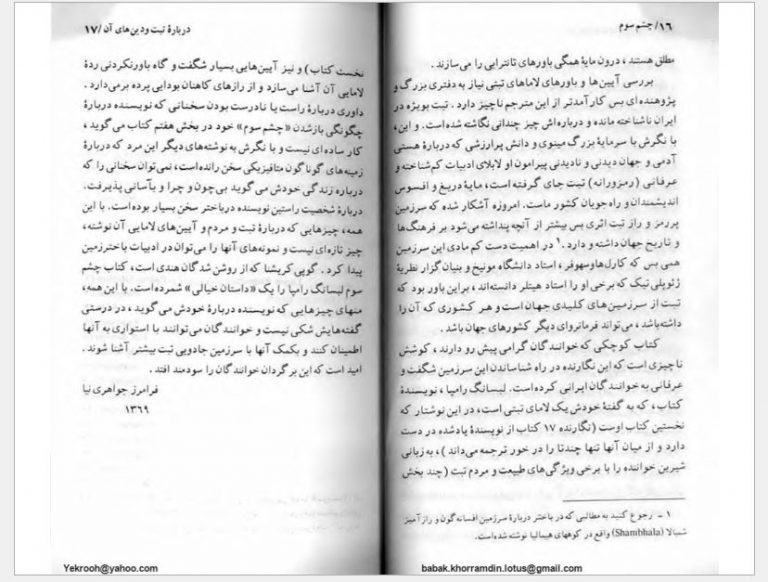 ۱۶/ چشم سوم
مطلق هستند، درون مایهٔ همگی باورهای تانترایی را می‌سازند.
بررسی آیین‌ها و باورهای لاماهای تبتی نیاز به دفتری بزرگ و
پژوهنده‌ای بس کارآمدتر از این مترجم ناچیز دارد. تبت بویژه در
ایران ناشناخته مانده و درباره‌اش چیز چندانی نگاشته شده‌است. و این،
با نگرش با سرمایهٔ بزرگ مینوی و دانش پرارزشی که دربارهٔ هستی
آدمی و جهان دیدنی و نادیدنی پیرامون او لابلای ادبیات کم‌شناخته و
عرفانی (رمزورانه) تبت جای گرفته است، مایهٔ دریغ و افسوس
اندیشمندان و راه‌جویان کشور ماست. امروزه آشکار شده که سرزمین
پررمز و راز تبت اثری بس بیشتر از آنچه پنداشته می‌شود بر فرهنگ‌ها
و تاریخ جهان داشته و دارد.۱ در اهمیت دست کم مادی این سرزمین
همی بس که کارل‌هاوسهوفر، استاد دانشگاه مونیخ و بنیان گزار نظریهٔ
ژئوپلی تیک که برخی او را استاد هیتلر دانسته‌اند، براین باور بود که
تبت از سرزمین‌های کلیدی جهان است و هر کشوری که آن را
داشته‌باشد، می‌تواند فرمانروای دیگر کشورهای جهان باشد.
کتاب کوچکی که خوانندگان گرامی پیش رو دارند، کوشش
ناچیزی است که این نگارنده در راه شناساندن این سرزمین شگفت و
عرفانی به خوانندگان ایرانی کرده‌است. لبسانگ رامپا، نویسندهٔ
کتاب، که به گفتهٔ خودش یک لامای تبتی است، در این نوشتار که
نخستین کتاب اوست (نگارنده ۱۷ کتاب از نویسندهٔ یادشده در دست
دارد و از میان آنها تنها چندتا را در خور ترجمه می‌داند)، به زبانی
شیرین خواننده را با برخی ویژگی‌های طبیعت و مردم تبت (چند بخش
۱ ـ رجوع کنید به مطالبی که در باختر دربارهٔ سرزمین افسانه‌گون و رازآمیز
شمبالا (Shambhala) واقع در کوههای هیمالیا نوشته شده‌است.
babak.khorramdin.lotus@gmail.com
دربارهٔ تبت و دین‌های آن / ۱۷
نخست کتاب) و نیز آیین‌هایی بسیار شگفت و گاه باورنکردنی ردهٔ
لامایی آن آشنا می‌سازد و از رازهای کاهنان بودایی پرده برمی‌دارد.
داوری دربارهٔ راست یا نادرست بودن سخنانی که نویسنده دربارهٔ
چگونگی بازشدن «چشم سوم» خود در بخش هفتم کتاب می‌گوید،
کار ساده‌ای نیست و با نگرش به نوشته‌های دیگر این مرد که دربارهٔ
زمینه‌های گوناگون متافیزیکی سخن رانده‌است، نمی‌توان سخنانی را که
درباره زندگی خودش می‌گوید بی‌چون و چرا و بآسانی پذیرفت.
دربارهٔ شخصیت راستین نویسنده درباختر سخن بسیار بوده‌است. با این
همه، چیزهایی که دربارهٔ تبت و مردم و آیین‌های لامایی آن نوشته،
چیز تازه‌ای نیست و نمونه‌های آنها را می‌توان در ادبیات باخترزمین
پیدا کرد. گوپی کریشنا که از روشن شدگان هندی است، کتاب چشم
سوم لبسانگ رامپا را یک «داستان خیالی» شمرده‌است. با این‌همه،
منهای چیزهایی که نویسنده دربارهٔ خودش می‌گوید، در درستی
گفته‌هایش شکی نیست و خوانندگان می‌توانند با استواری به آنها
اطمینان کنند و بکمک آنها با سرزمین جادویی تبت بیشتر آشنا شوند.
امید است که این برگردان خوانندگان را سودمند افتد.
فرامرز جواهری نیا
۱۳۶۹
Yekrooh@yahoo.com